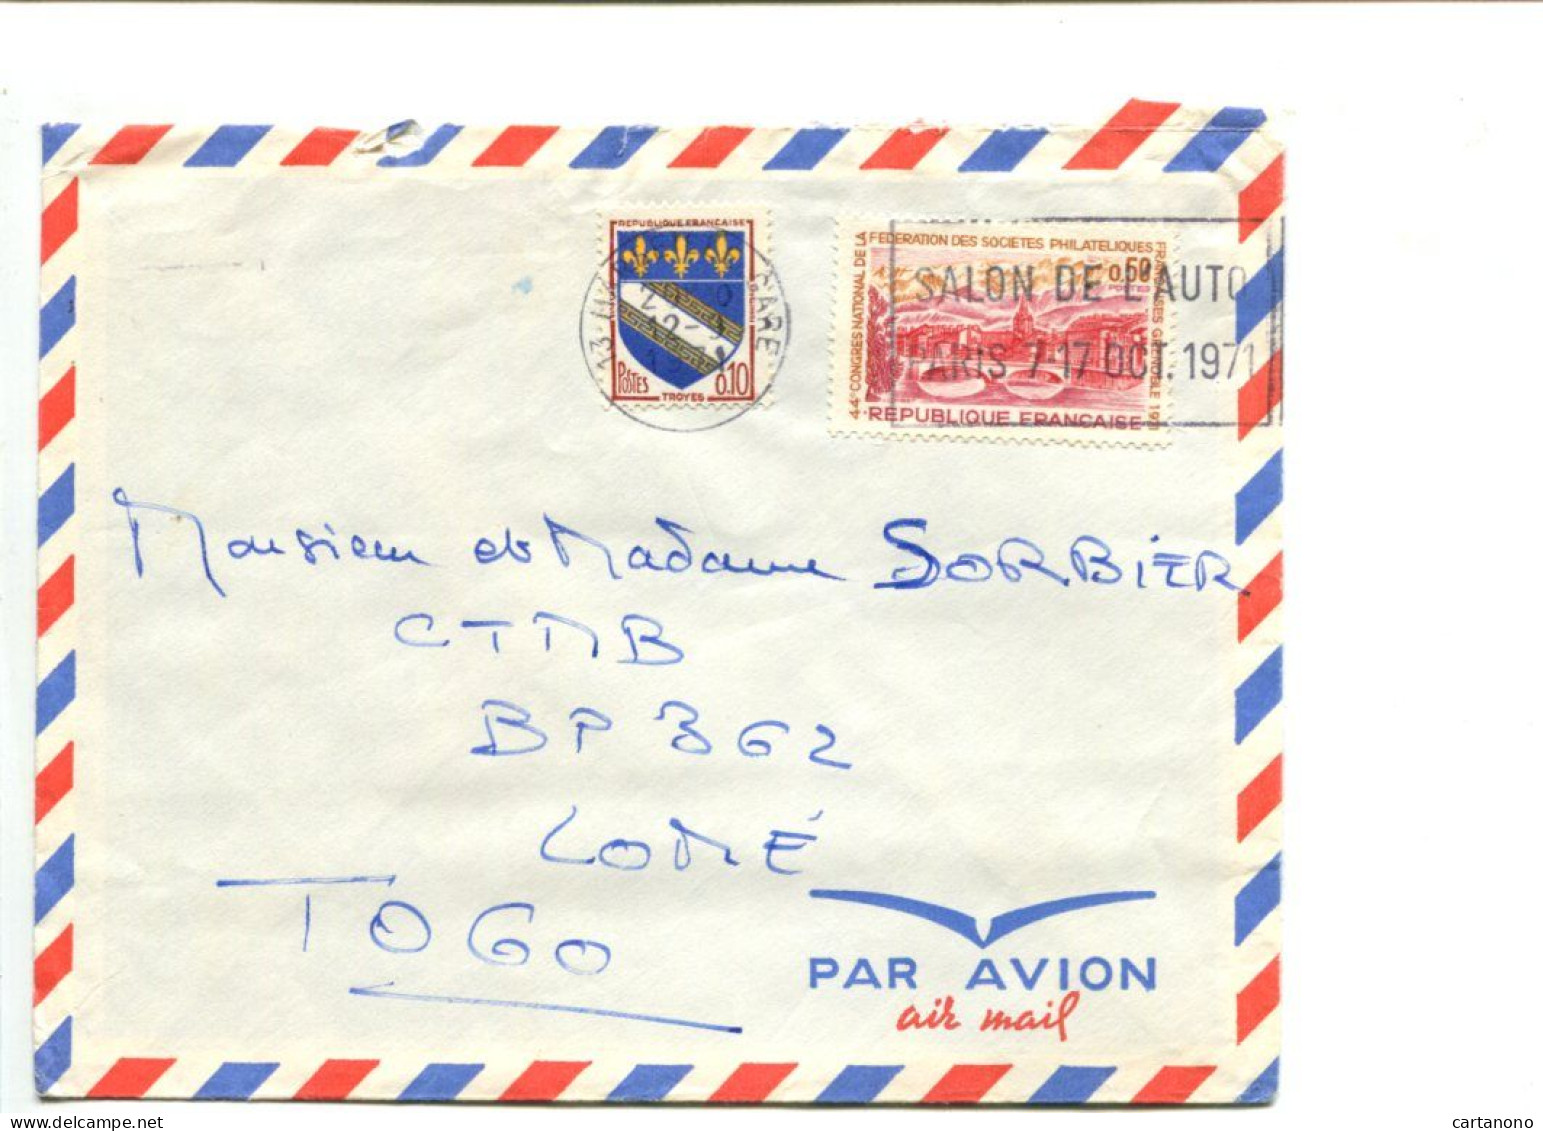 REPUBLIQUE FRANCAISE
POSTES 0.10
TROYES
13 GARE
44e CONGRES NATIONAL DE LA FEDERATION DES SOCIETES PHILATELIQUES FRANÇAISES GRENOBLE 1971
0,50
POSTES
REPUBLIQUE FRANCAISE
SALON DE L'AUTO
PARIS 7-17 OCT. 1971
Monsieur et Madame SORBIER
CTMB
BP 362
LOMÉ
TOGO
PAR AVION
air mail
cartanono